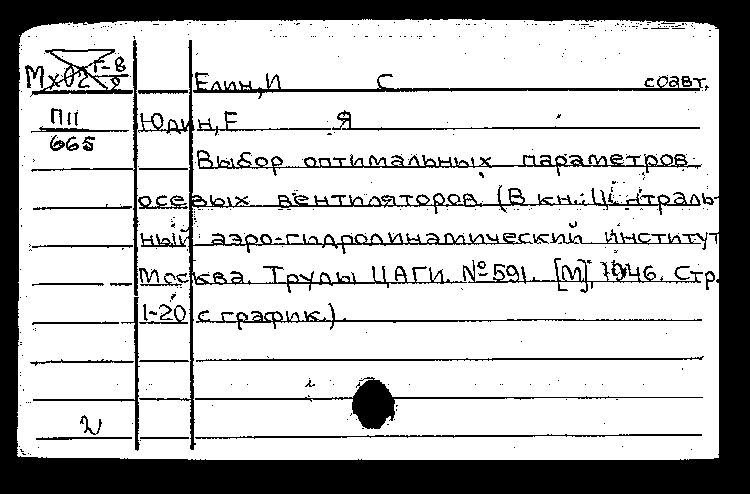 Мх02 Г-8/9
Елин, И С соавт.
П11/665
Юдин, Е Я
Выбор оптимальных параметров
осевых вентиляторов. (В кн.: Централь-
ный аэро-гидродинамический институт
Москва. Труды ЦАГИ. №591. [М], 1946. Стр.
1-20 с график.).